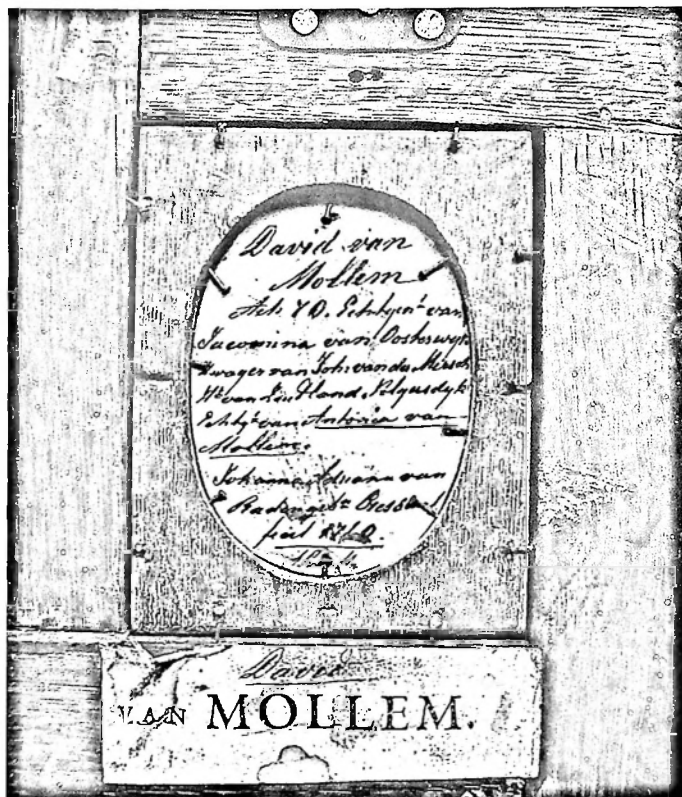 David van
Mollem
Echtgent van
Jacomina van Oosterwyk
Zwager van Joh. van der Mersch
Hr. van Zuidland, Velgersdyk
Echtgt van Antonia van
Mollem.
Johanna Adriana van
fecit 1740.
David
VAN MOLLEM.